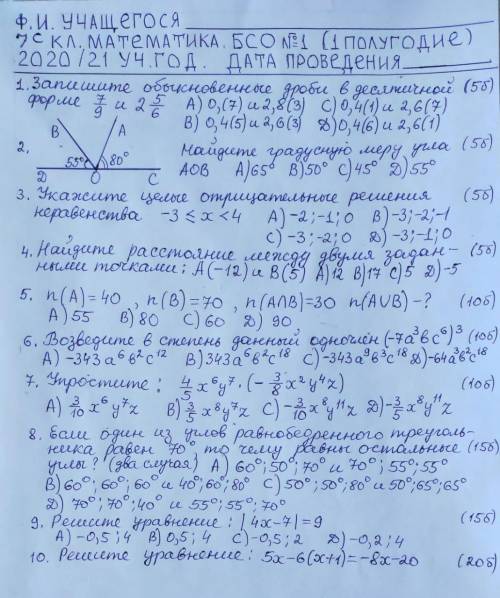 Ф. И. УЧАЩЕГОСЯ
7С КЛ. МАТЕМАТИКА. БСО №1 (1 ПОЛУГОДИЕ)
2020/21 УЧ. ГОД. ДАТА ПРОВЕДЕНИЯ
1. Запишите обыкновенные дроби в десятичной (5б)
форме 7/9 и 2 5/6 А) 0,(7) и 2,8(3) С) 0,4(1) и 2,6(7)
В) 0,4(5) и 2,6(3) Д) 0,4(6) и 2,6(1)
2. B A 55° 80° D O C
Найдите градусную меру угла (5б)
АОВ А) 65° В) 50° С) 45° Д) 55°
3. Укажите целые отрицательные решения (5б)
неравенства -3 ⩽ x < 4 А) -2; -1; 0 В) -3; -2; -1
С) -3; -2; 0 Д) -3; -1; 0
4. Найдите расстояние между двумя задан- (5б)
ными точками: А(-12) и В(5) А) 12 В) 17 С) 5 Д) -5
5. n(A) = 40, n(B) = 70, n(A∩B) = 30 n(A∪B) - ? (10б)
А) 55 В) 80 С) 60 D) 90
6. Возведите в степень данный одночлен (-7a³bc⁶)³ (10б)
А) -343a⁶b²c¹² В) 343a⁶b²c¹⁸ С) -343a⁹b³c¹⁸ Д) -64a³b²c¹⁸
7. Упростите: 4/5 x⁶y⁷ · (-3/8 x²y⁴z) (10б)
А) 3/10 x⁶y⁷z В) 3/5 x⁸y⁷z С) -3/10 x⁸y¹¹z Д) -3/5 x⁸y¹¹z
8. Если один из углов равнобедренного треуголь-
ника равен 70°, то чему равны остальные (15б)
углы? (два случая) А) 60°; 50°; 70° и 70°; 55°; 55°
В) 60°; 60°; 60° и 40°; 60°; 80° С) 50°; 50°; 80° и 50°; 65°; 65°
Д) 70°; 70°; 40° и 55°; 55°; 70°
9. Решите уравнение: |4x-7| = 9 (15б)
А) -0,5; 4 В) 0,5; 4 С) -0,5; 2 Д) -0,2; 4
10. Решите уравнение: 5x-6(x+1) = -8x-20 (20б)